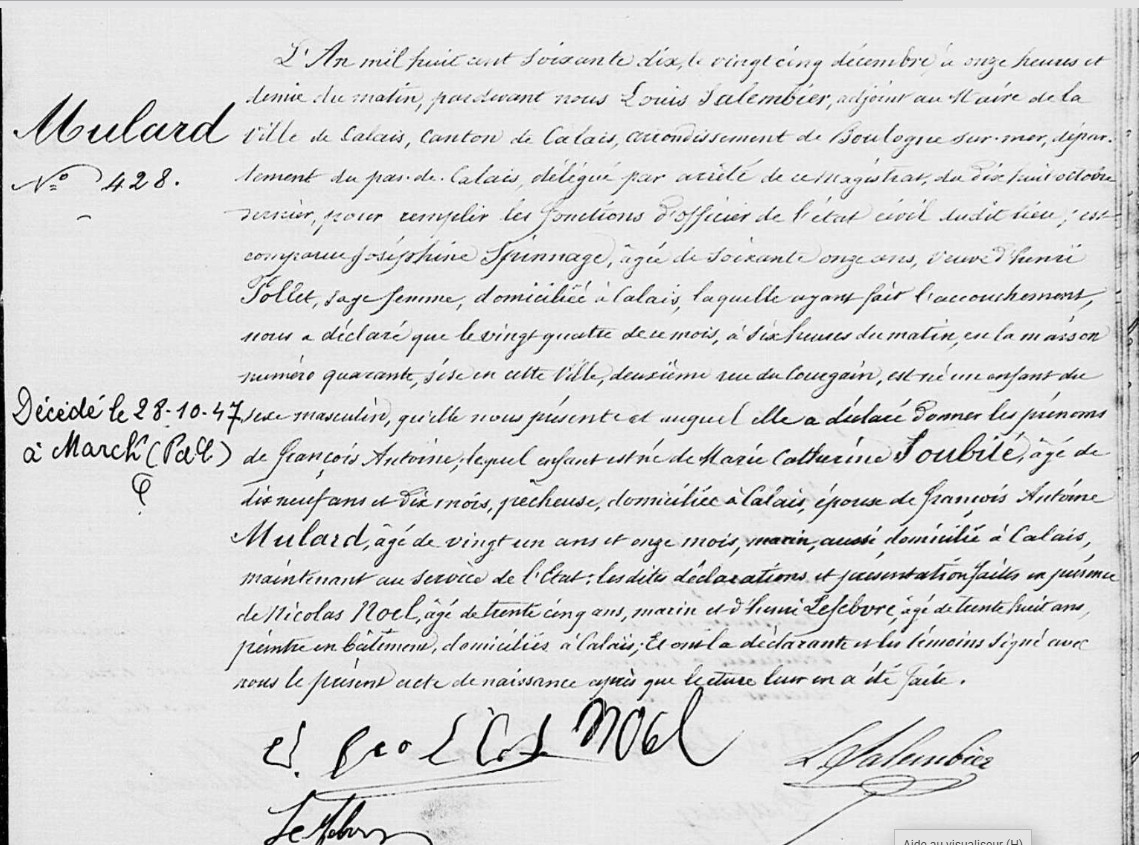 L'An mil huit cent soixante dix, le vingt cinq décembre à onze heures et
demie du matin, pardevant nous Louis Salembier, adjoint au Maire de la
Mulard
ville de Calais, canton de Calais, arrondissement de Boulogne sur-mer, dépar-
Nº 428.
tement du pas-de-Calais, délégué par arrêté de ce Magistrat, du dix huit octobre
dernier, pour remplir les fonctions d'officier de l'état civil dudit lieu; est
comparue Joséphine Spinnage, âgée de soixante onze ans, veuve d'henri
Tollet, sage femme, domiciliée à Calais, laquelle ayant fait l'accouchement,
nous a déclaré que le vingt quatre de ce mois, à six heures du matin, en la maison
numéro quarante, sise en cette Ville, deuxième rue du Courgain, est né un enfant du
Décédé le 28-10-47
sexe masculin, qu'elle nous présente et auquel elle a déclaré donner les prénoms
à Marck (P d C)
de françois Antoine; lequel enfant est né de Marie Catherine Soubité, âgé de
dix neuf ans et dix mois, pêcheuse, domiciliée à Calais, épouse de françois Antoine
Mulard, âgé de vingt un ans et onze mois, marin, aussi domicilié à Calais,
maintenant au service de l'Etat; lesdites déclarations et présentation faites en présence
de Nicolas Noël, âgé de trente cinq ans, marin et d'henri Lefebvre, âgé de trente huit ans,
peintre en bâtiment, domiciliés à Calais; Et ont la déclarante et les témoins signé avec
nous le présent acte de naissance après que lecture leur en a été faite.
Noel
L Salembier
Lefebvre
Aide au visualiseur (H)